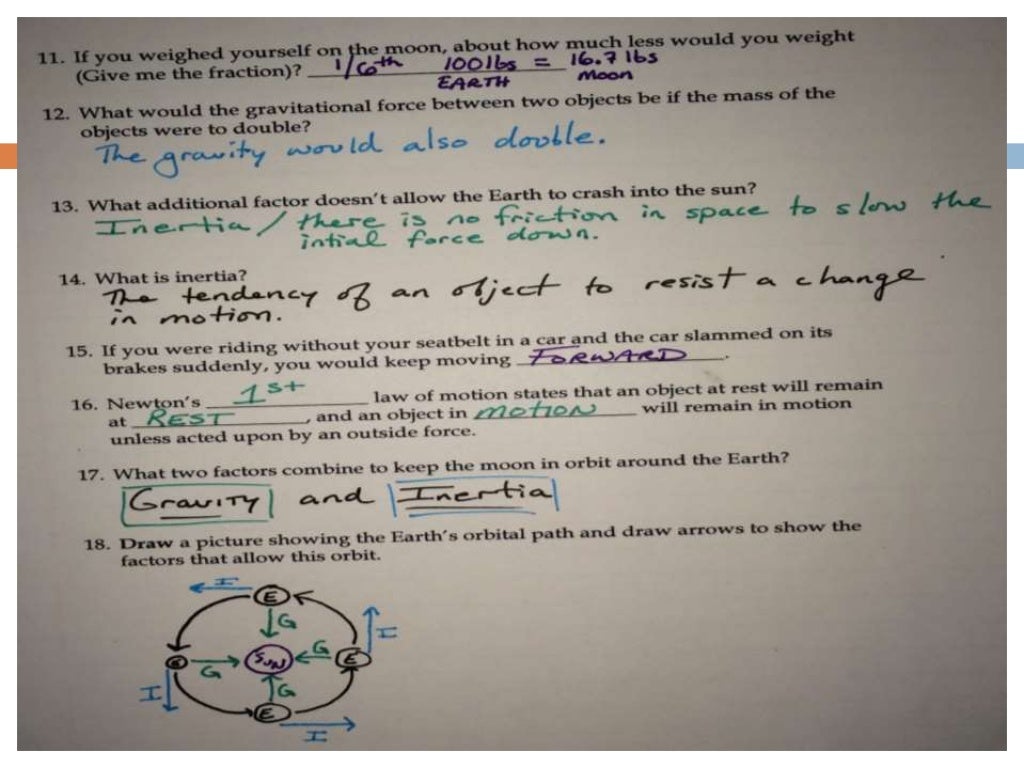 11. If you weighed yourself on the moon, about how much less would you weight
(Give me the fraction)? 1/6th 100 lbs = 16.7 lbs
EARTH Moon
12. What would the gravitational force between two objects be if the mass of the
objects were to double?
The gravity would also double.
13. What additional factor doesn't allow the Earth to crash into the sun?
Inertia / there is no friction in space to slow the
intial force down.
14. What is inertia?
The tendency of an object to resist a change
in motion.
15. If you were riding without your seatbelt in a car and the car slammed on its
brakes suddenly, you would keep moving FORWARD.
16. Newton's 1st law of motion states that an object at rest will remain
at REST, and an object in motion will remain in motion
unless acted upon by an outside force.
17. What two factors combine to keep the moon in orbit around the Earth?
Gravity and Inertia
18. Draw a picture showing the Earth's orbital path and draw arrows to show the
factors that allow this orbit.
I
E
G
I
E G SUN G E
I
G
E
I